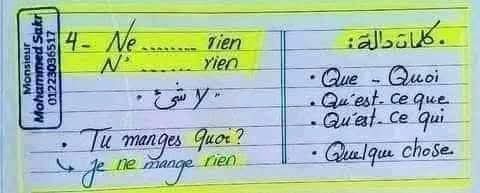 Monsieur
Mohammed Sakr
01223036517
4- Ne ........ rien
N' ...... rien
" لا شئ "
• Tu manges quoi?
↳ je ne mange rien
• كلمات دالة:
• Que - Quoi
• Qu'est-ce que
• Qu'est-ce qui
• Quelque chose.